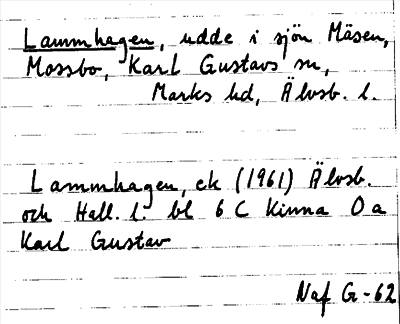 Lammhagen, udde i sjön Mäsen,
Mossbo, Karl Gustavs sn,
Marks hd, Älvsb. l.
Lammhagen, ek (1961) Älvsb.
och Hall. l. bl 6 C Kinna 0 a
Karl Gustav
Naf G-62